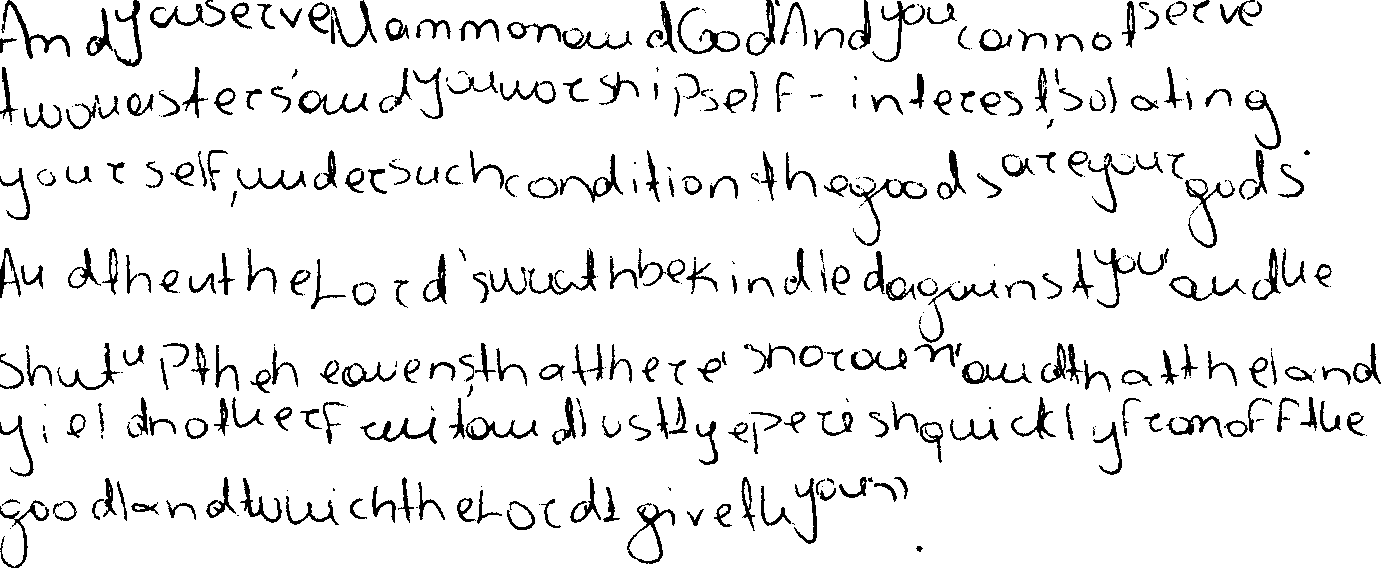 And you serve Mammon and God' And you cannot serve
two masters' and you worship self-interest, isolating
yourself, under such condition the goods are your gods'
And then the Lord's wrath be kindled against you' and he
shut up the heavens, that there's no rain' and that the land
yield not her fruit and lust ye perish quickly from off the
good land which the Lord giveth you"